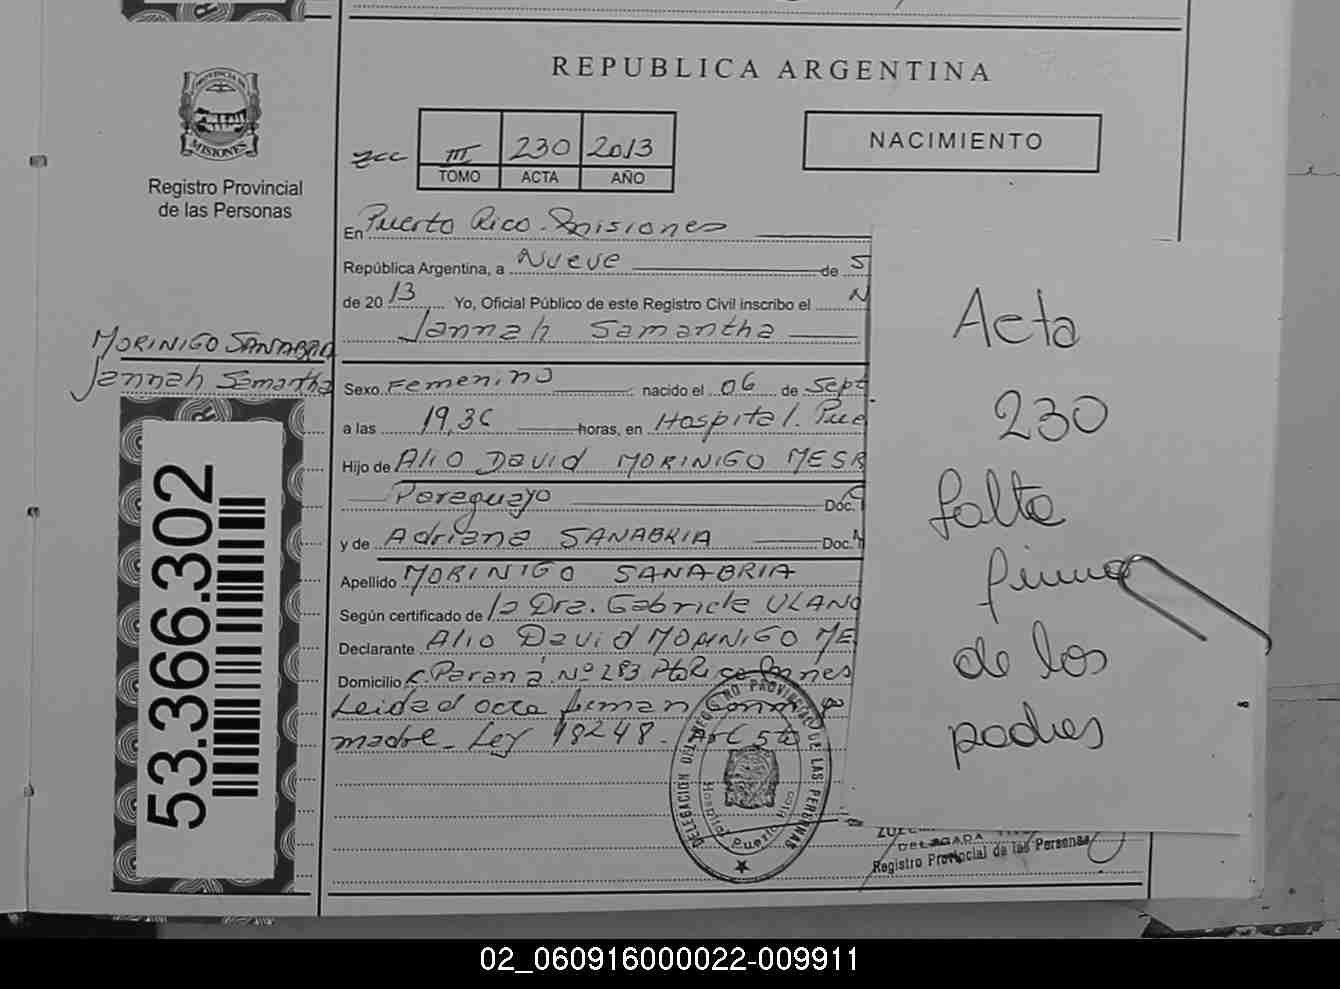 REPUBLICA ARGENTINA
PROVINCIA DE
MISIONES
Registro Provincial
de las Personas
III 230 2013
TOMO ACTA AÑO
NACIMIENTO
En Puerto Rico. Misiones
República Argentina, a Nueve de S
de 20 13 Yo, Oficial Público de este Registro Civil inscribo el N
Jannah Samantha
MORINIGO SANABRIA
Jannah Samantha
Sexo Femenino nacido el 06 de Sept
a las 19,36 horas, en Hospital. Pue
Hijo de Alio David MORINIGO MESA
Paraguayo Doc.
y de Adriana SANABRIA Doc.
Apellido MORINIGO SANABRIA
Según certificado de la Dra. Gabriela ULANO
Declarante Alio David MORINIGO ME
Domicilio c. Paraná Nº 283 Pto Rico Mnes
Leida el acta firman conmigo
madre - Ley 18248. Art 5to
53.366.302
DELEGACION DEL REGISTRO PROVINCIAL DE LAS PERSONAS
DELEGADA
Registro Provincial de las Personas
Acta
230
falta
firma
de los
padres
02_060916000022-009911